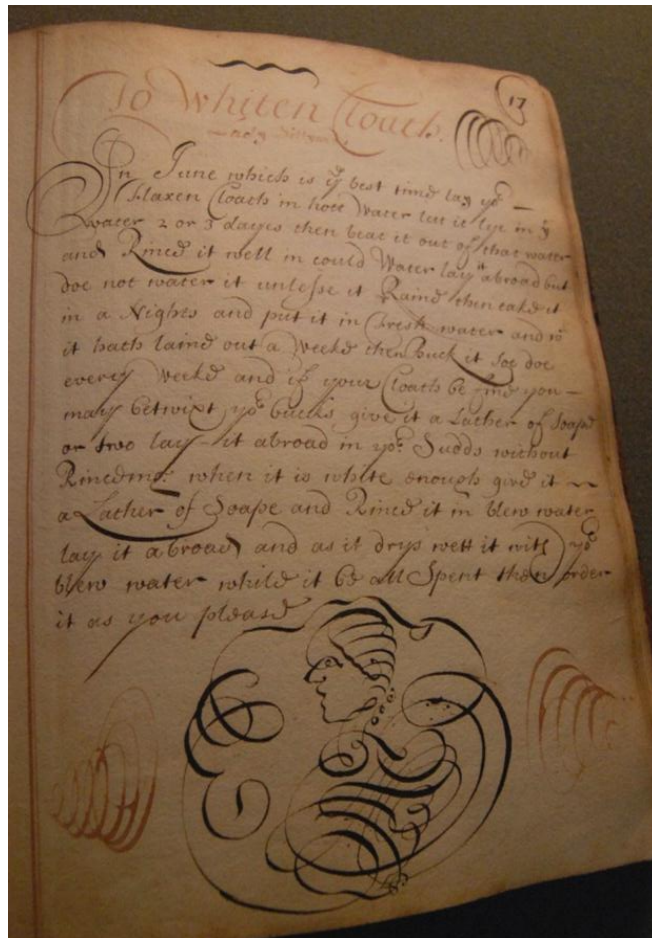 17
To Whiten Cloath.
In June which is yͤ best time lay yoͬ
Flaxen Cloath in hott Water lett it lye in yͤ
water 2 or 3 dayes then beat it out of that water
and Rince it well in could Water lay it abroad but
doe not water it unlesse it Raine then take it
in a Nights and put it in fresh water and
it hath laine out a Weeke then Buck it soe doe
every Weeke and if your Cloath be fine you
may betwixt yoͬ bucks give it a Lather of Soape
or two lay it abroad in yoͬ Sudds without
Rinceing: when it is white enough give it
a Lather of Soape and Rince it in blew water
lay it abroad and as it drys wett it with yoͬ
blew water while it be all Spent then order
it as you please